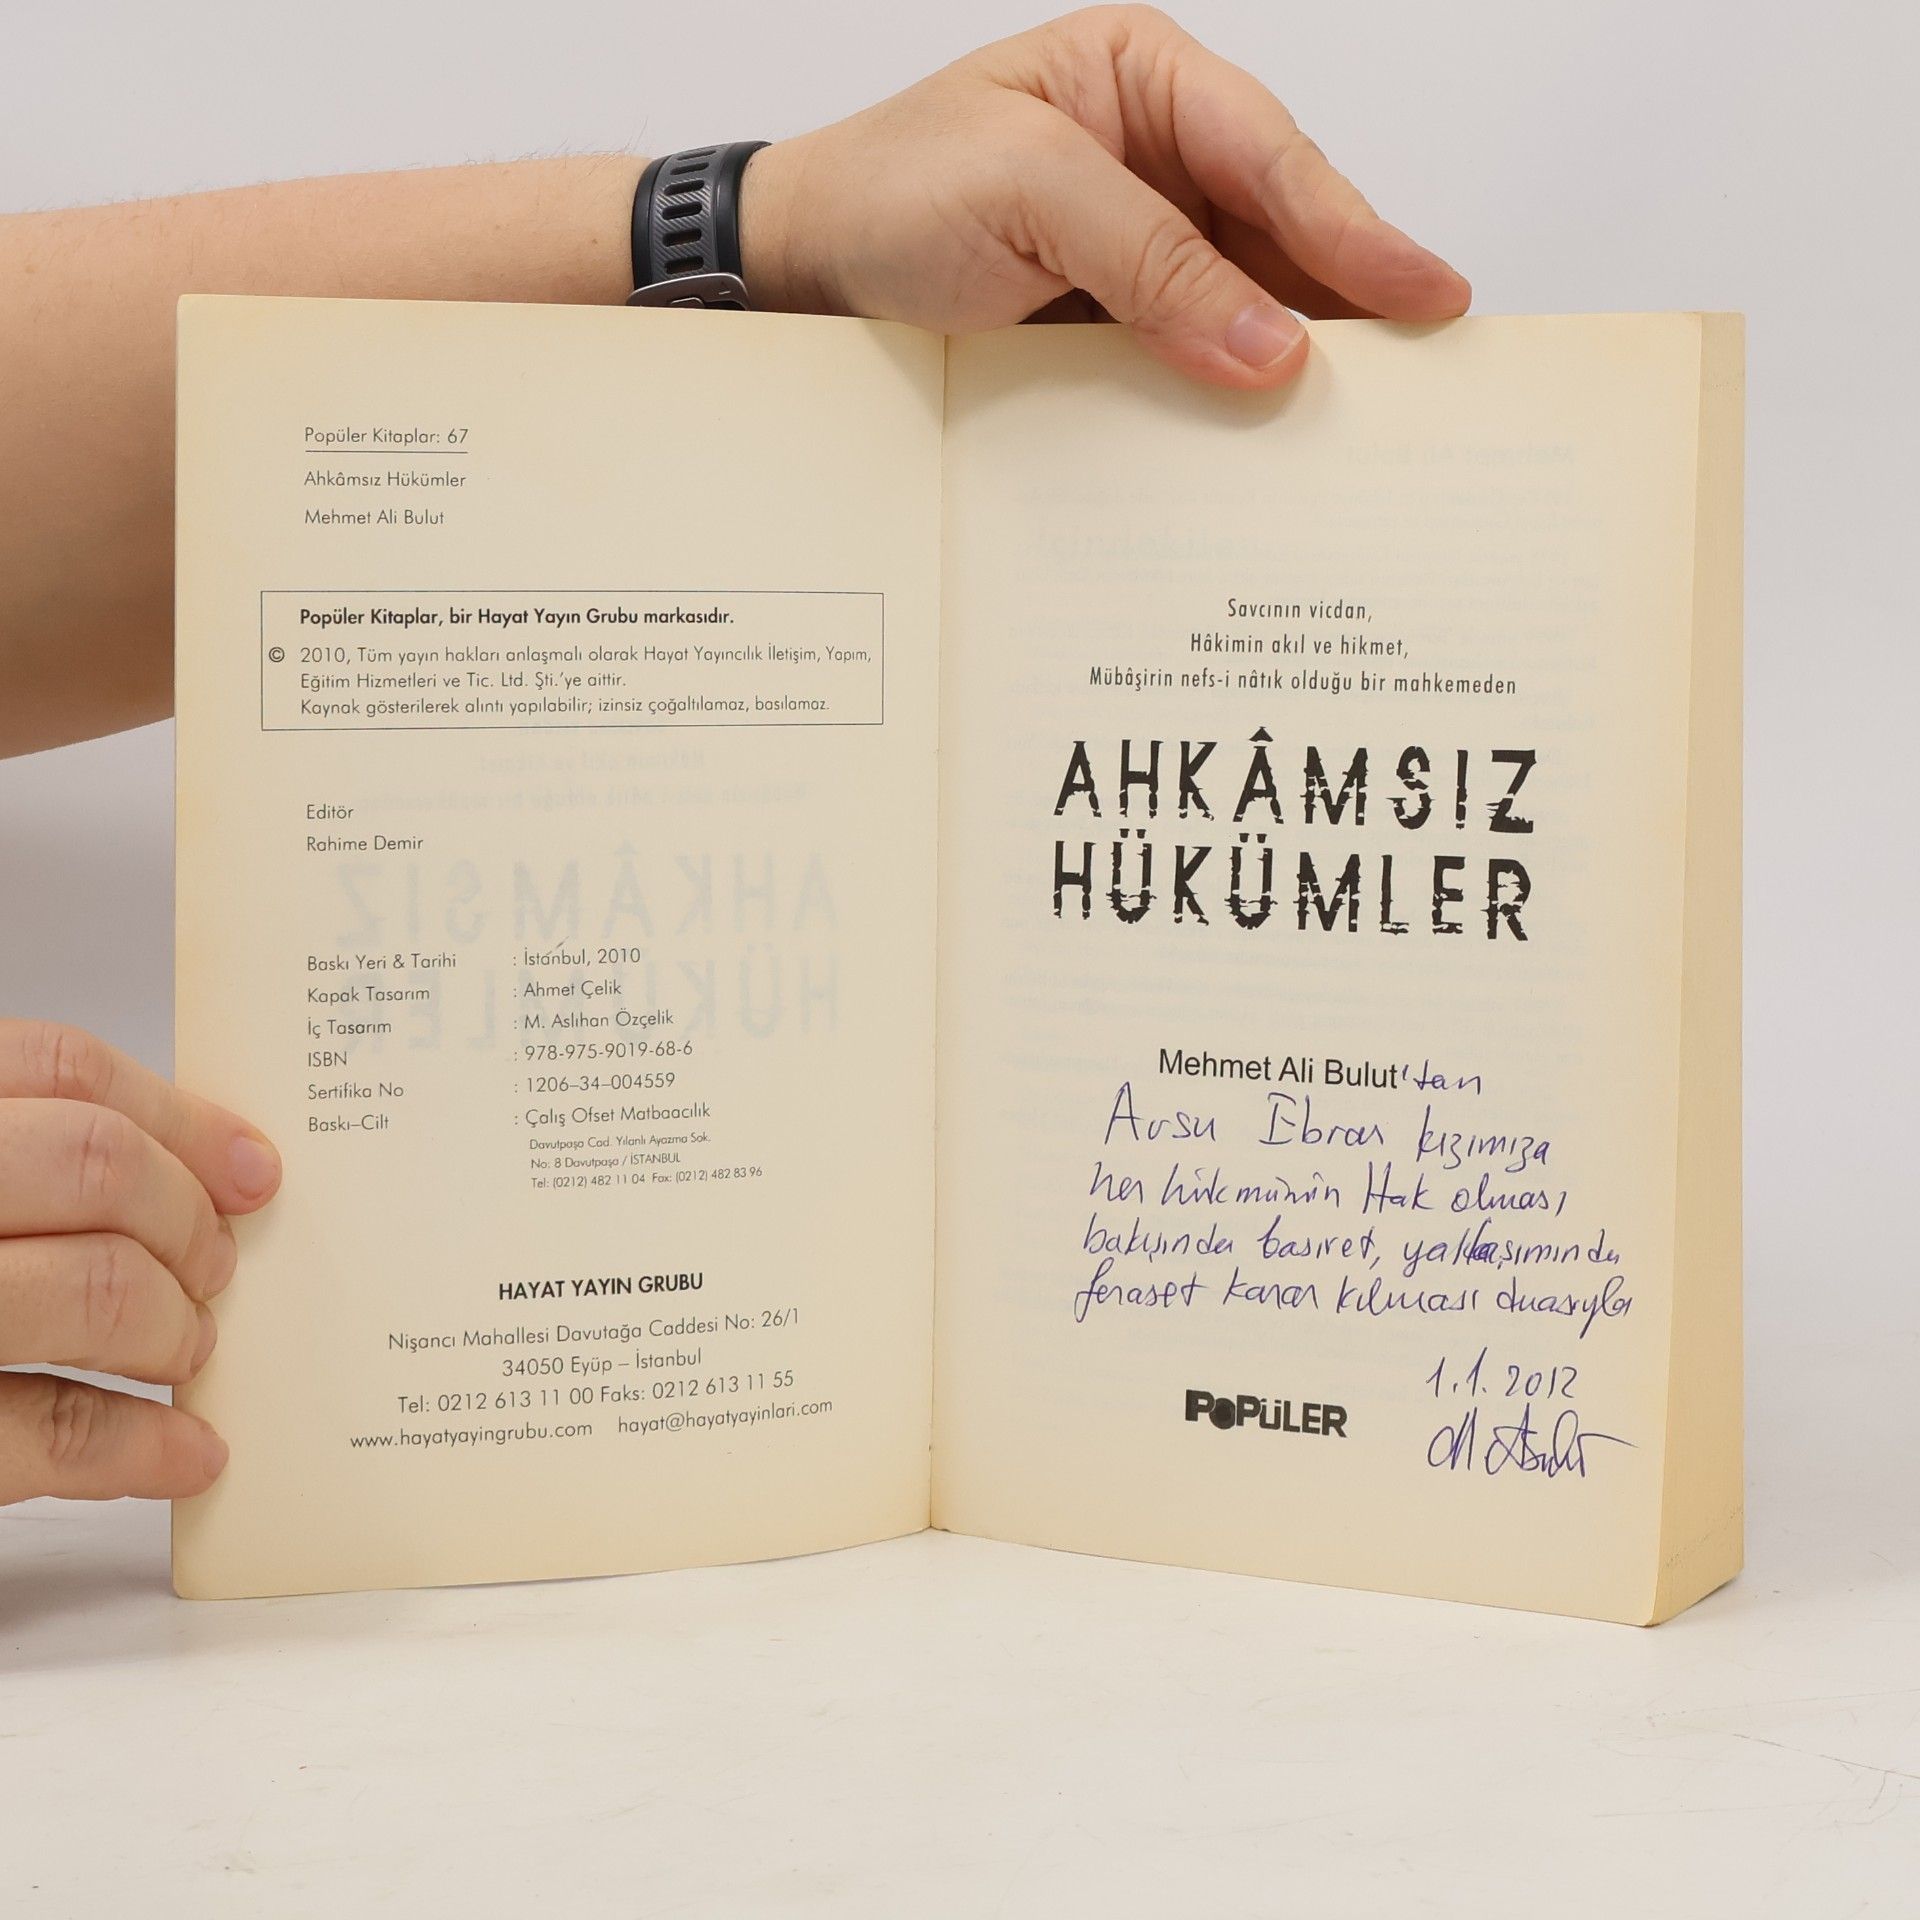 Popüler Kitaplar: 67
Ahkâmsız Hükümler
Mehmet Ali Bulut
Popüler Kitaplar, bir Hayat Yayın Grubu markasıdır.
© 2010, Tüm yayın hakları anlaşmalı olarak Hayat Yayıncılık İletişim, Yapım,
Eğitim Hizmetleri ve Tic. Ltd. Şti.'ye aittir.
Kaynak gösterilerek alıntı yapılabilir; izinsiz çoğaltılamaz, basılamaz.
Editör
Rahime Demir
Baskı Yeri & Tarihi : İstanbul, 2010
Kapak Tasarım : Ahmet Çelik
İç Tasarım : M. Aslıhan Özçelik
ISBN : 978-975-9019-68-6
Sertifika No : 1206–34–004559
Baskı–Cilt : Çalış Ofset Matbaacılık
Davutpaşa Cad. Yılanlı Ayazma Sok.
No: 8 Davutpaşa / İSTANBUL
Tel: (0212) 482 11 04 Fax: (0212) 482 83 96
HAYAT YAYIN GRUBU
Nişancı Mahallesi Davutağa Caddesi No: 26/1
34050 Eyüp – İstanbul
Tel: 0212 613 11 00 Faks: 0212 613 11 55
www.hayatyayingrubu.com hayat@hayatyayinlari.com
Savcının vicdan,
Hâkimin akıl ve hikmet,
Mübâşirin nefs-i nâtık olduğu bir mahkemeden
AHKÂMSIZ
HÜKÜMLER
Mehmet Ali Bulut'tan
Ebrar kızımıza
her hükmünün Hak olması
bakışında basiret, yaklaşımında
feraset karar kılması duasıyla
1.1.2012
POPÜLER